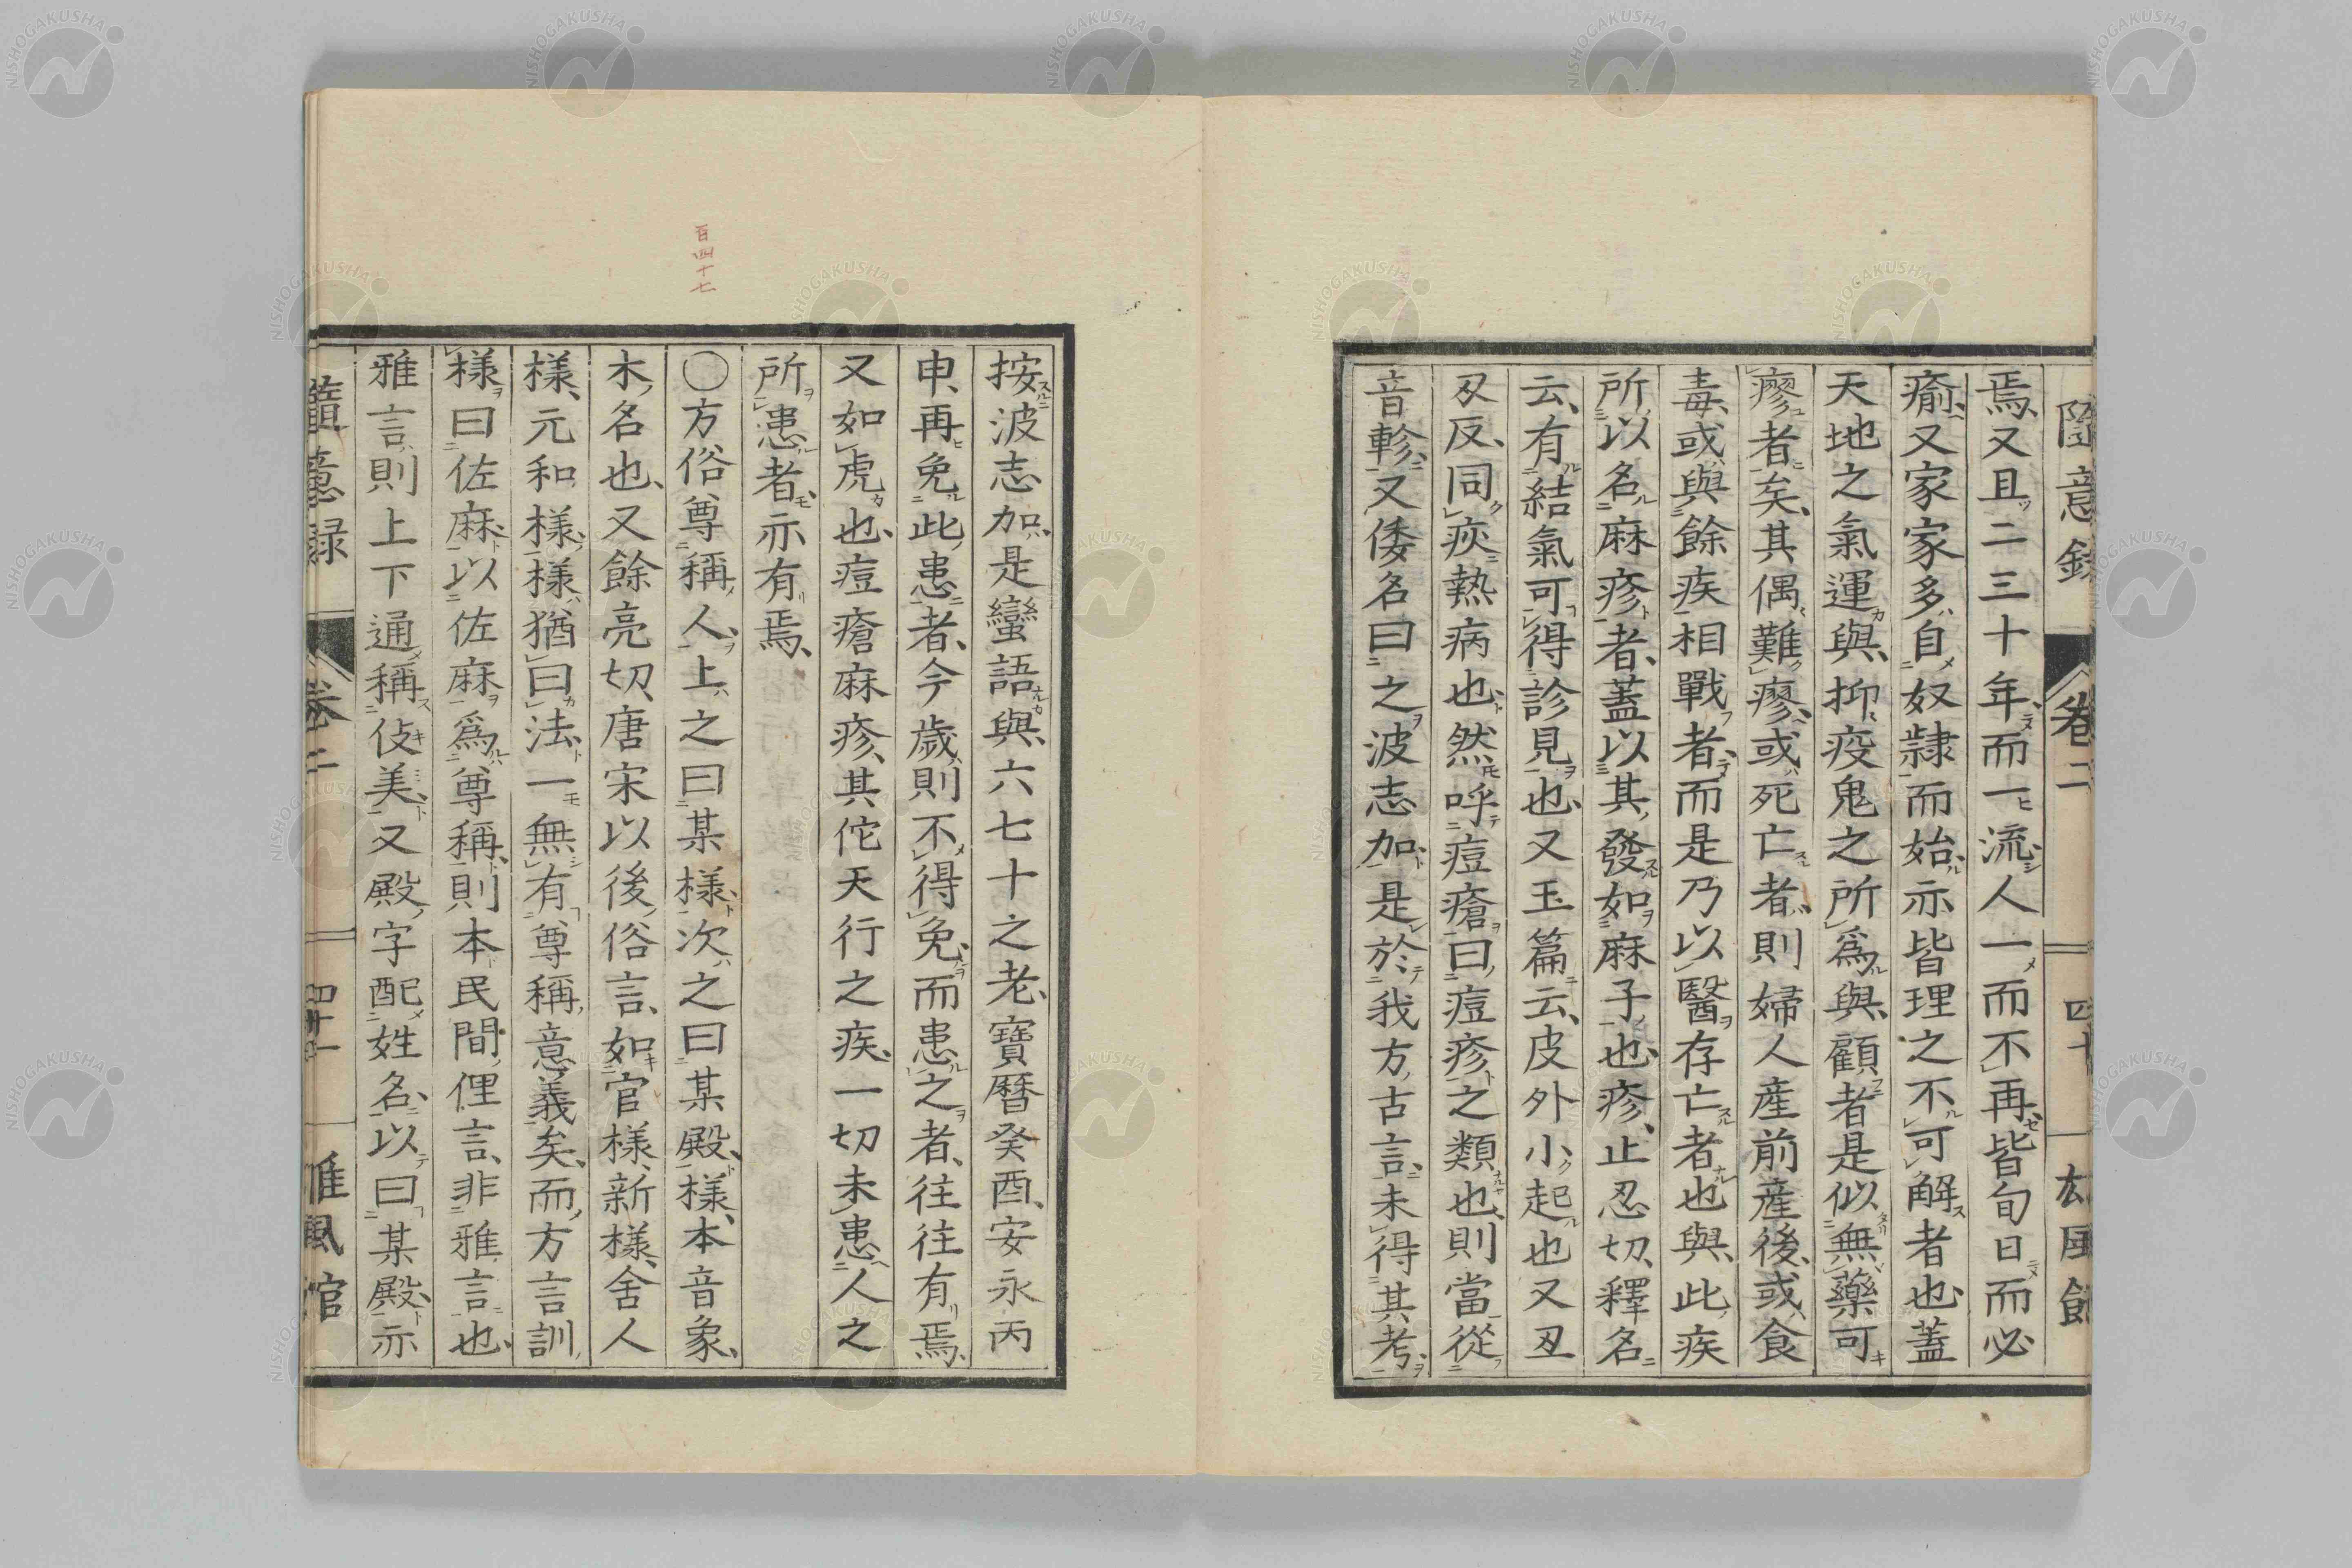 隨意錄 卷二 四十
焉、又且二三十年、而一流人一而不再、皆旬日而必
瘉、又家家多自奴隷而始、亦皆理之不可解者也、蓋
天地之氣運與、抑疫鬼之所爲與、顧者是似無藥可
瘳者矣、其偶難瘳、或死亡者、則婦人産前産後、或食
毒、或與餘疾相戰者、而是乃以醫存亡者也與、此疾
所以名麻疹者、蓋以其發如麻子也、疹、止忍切、釋名
云、有結氣可得診見也、又玉篇云、皮外小起也又丑
刄反、同疢熱病也、然呼痘瘡曰痘疹之類也、則當從
音軫、又倭名曰之波志加、是於我方古言、未得其考、
按波志加、是蠻語與、六七十之老、寶曆癸酉、安永丙
申、再免此患者、今歲則不得免、而患之者、往往有焉、
又如虎也、痘瘡麻疹、其佗天行之疾、一切未患人之
所患者、亦有焉、
百四十七
〇方俗尊稱人、上之曰某様、次之曰某殿、様、本音象、
木名也、又餘亮切、唐宋以後俗言、如官様、新様、舍人
様、元和様、様猶曰法、一無有尊稱意義矣、而方言訓
様曰佐麻、以佐麻爲尊稱、則本民間俚言、非雅言也、
雅言則上下通稱伎美、又殿字配姓名、以曰某殿、亦
隨意錄 卷二 四十一 雅風館